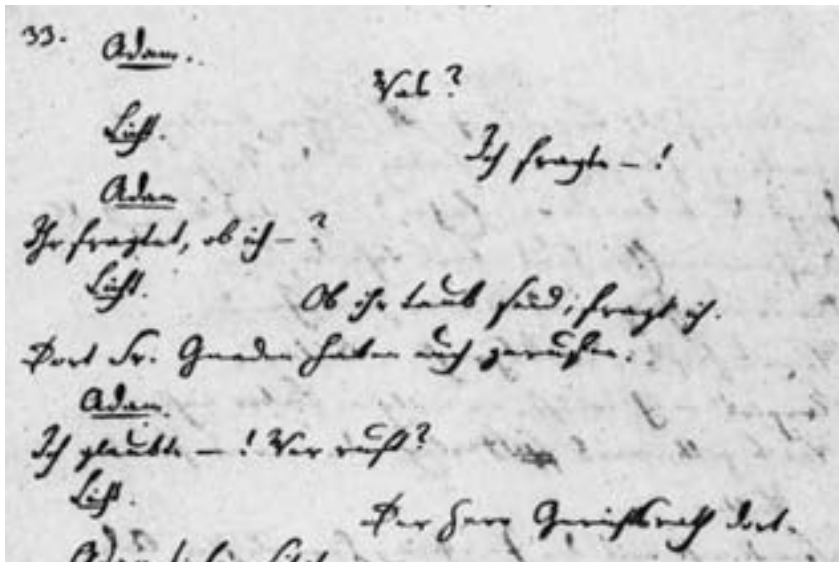 33.
Adam.
Was?
Licht.
Ich fragte – !
Adam
Ihr fragtet, ob ich – ?
Licht.
Ob ihr taub sind, fragt ich.
Dort Sr. Gnaden haben euch gerufen.
Adam.
Ich glaubte – ! Wer ruft?
Licht.
Der Herr Gerichtsrath dort.
Adam